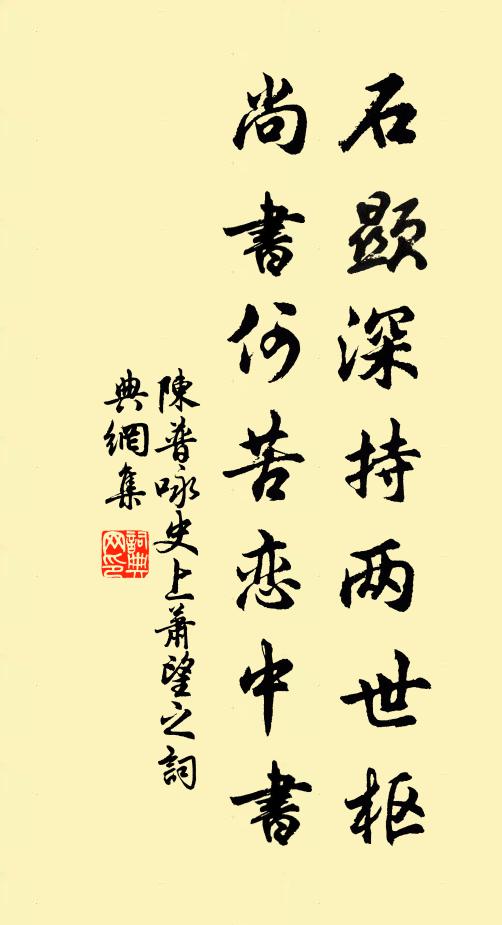 石顯深持两世枢
尚書何苦恋中書
陳普咏史上蕭望之詞
典網集
詞典
网印